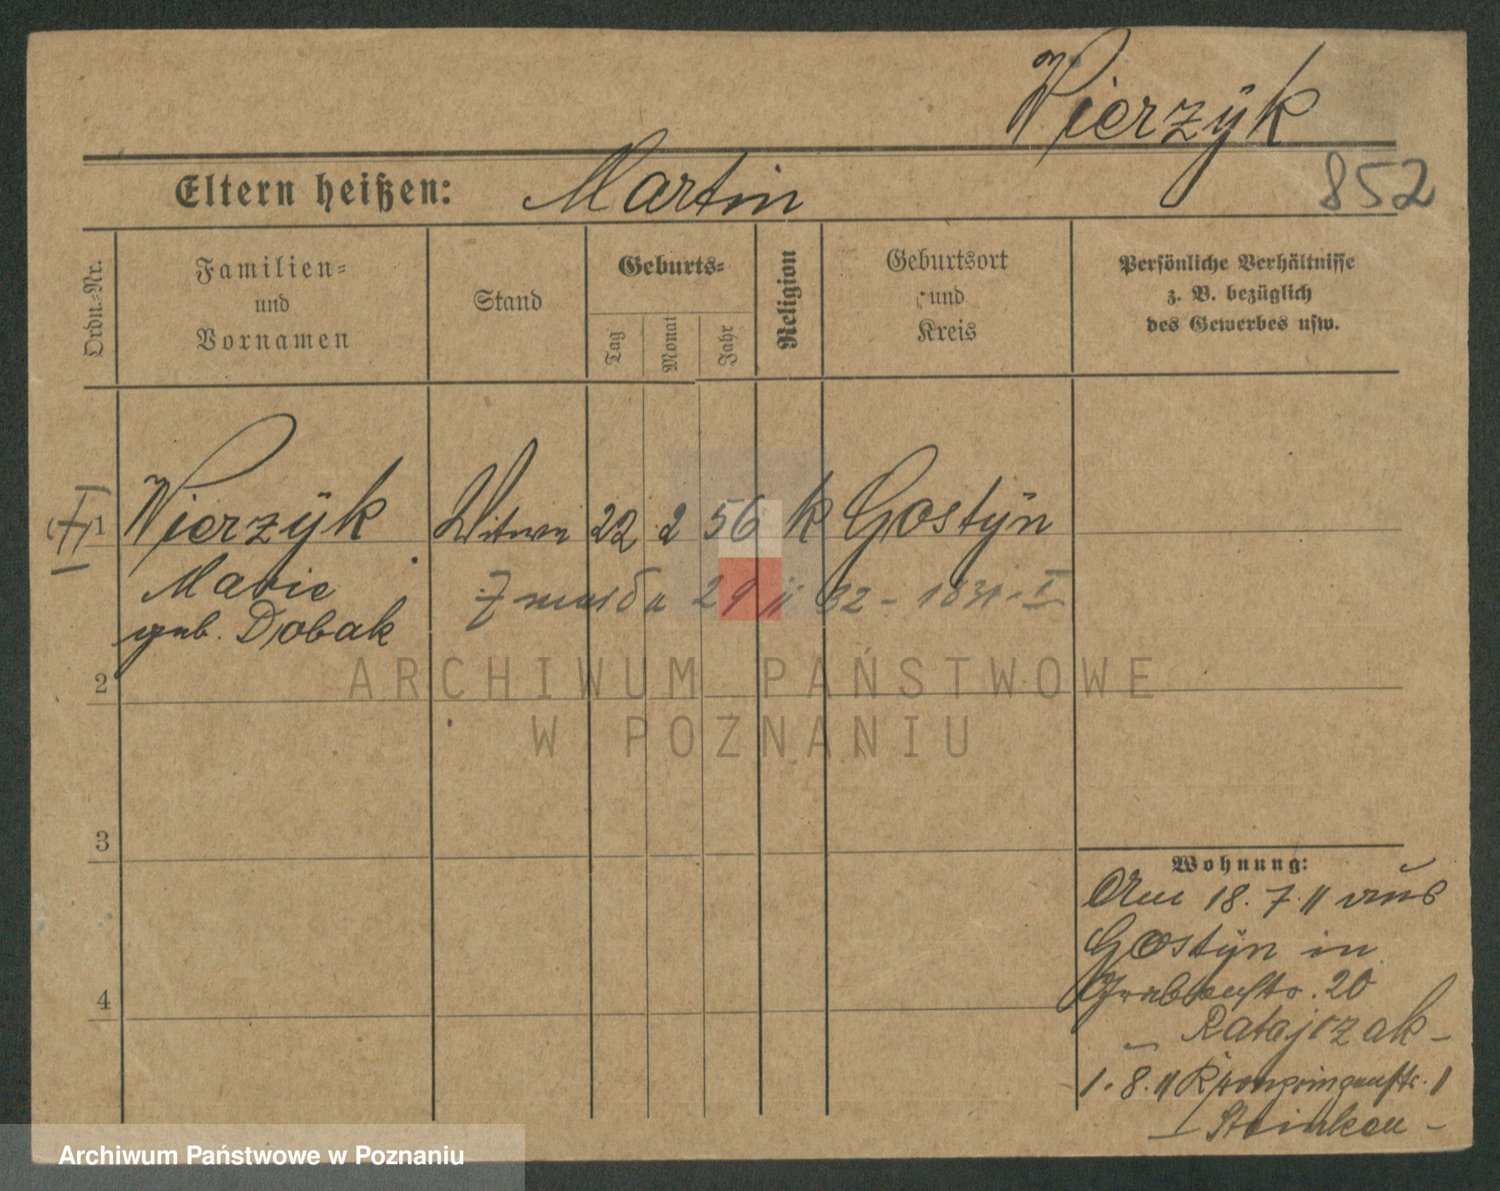 Wierzyk
852
Eltern heißen: Martin
Ordn.-Nr.
Familien-
und
Vornamen
Stand
Geburts-
Tag
Monat
Jahr
Religion
Geburtsort
und
Kreis
Persönliche Verhältnisse
z. B. bezüglich
des Gewerbes usw.
1 Wierzyk Witwe 22 2 56 k Gostyn
Marie
geb. Dobak
Zmarła 29 11 32 - 1831 - I
2
3
4
Wohnung:
Am 18.7.11 aus
Gostyn in
Grabenstr. 20
- Ratajczak -
1.8.11 Kronprinzenstr. 1
- Steinken -
ARCHIWUM PAŃSTWOWE
W POZNANIU
Archiwum Państwowe w Poznaniu